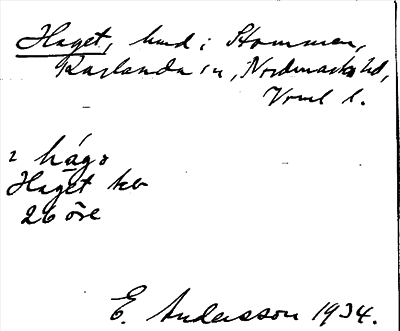 Haget, hmd i Stommen,
Karlanda sn, Nordmarks hd,
Vrml l.
2 hágo
Haget hb
26 öre
E. Andersson 1934.